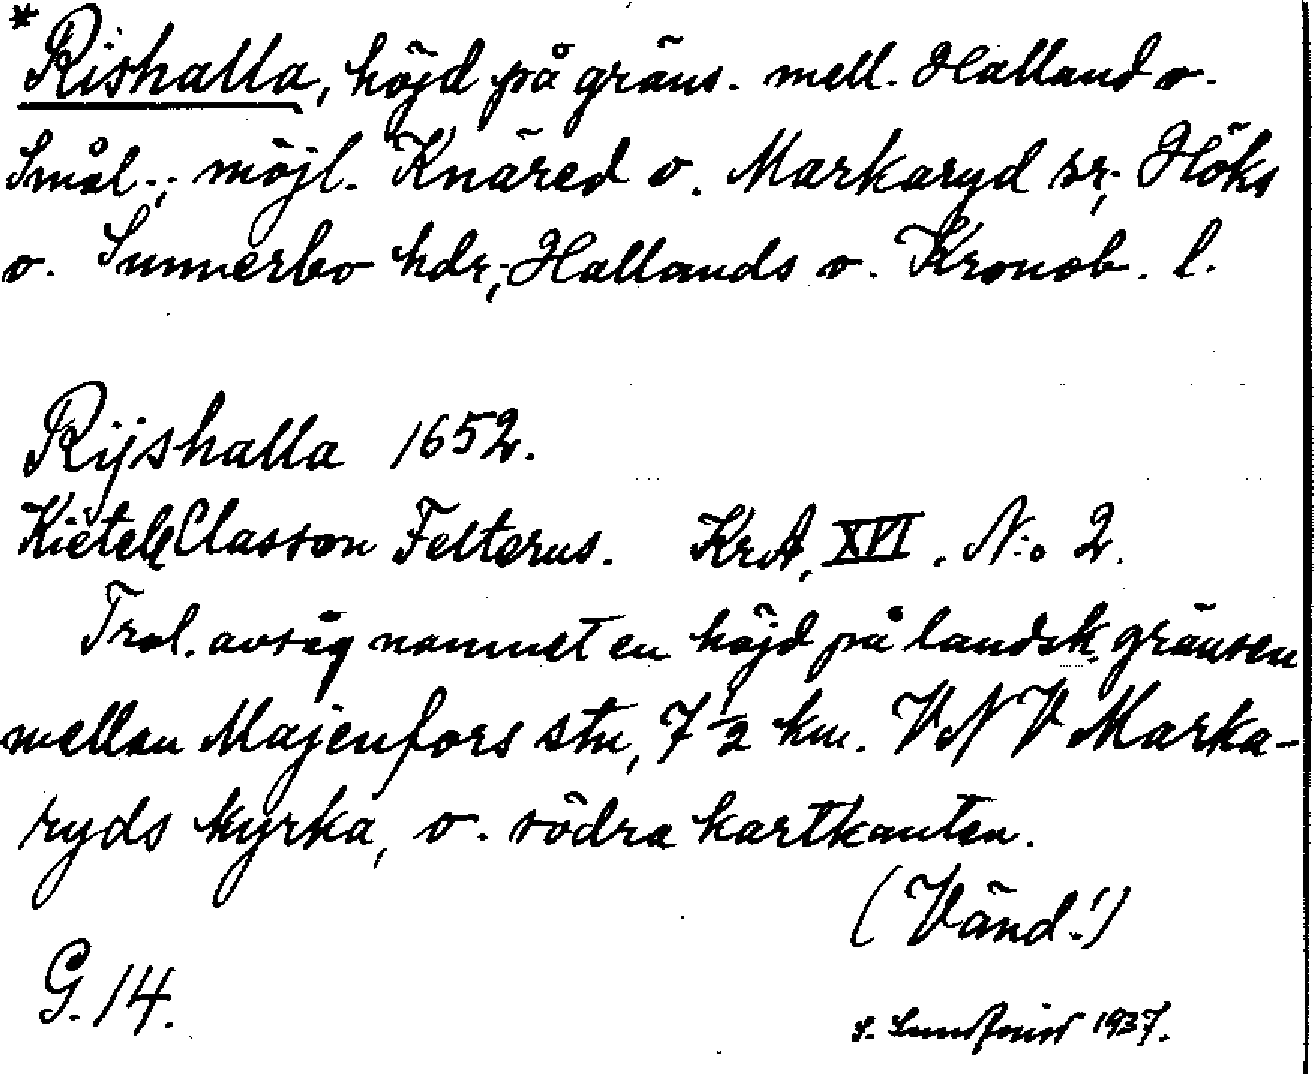 * Rishalla, höjd på gräns. mell. Halland o.
Smål.; möjl. Knäred o. Markaryd sr; Höks
o. Sunnerbo hdr; Hallands o. Kronob. l.
Rijshalla 1652.
Kietell Classon Felterus. KrA, XVI. N:o 2.
Trol. avsåg namnet en höjd på landsk. gränsen
mellan Majenfors stn, 7 1/2 km. VNV Marka-
ryds kyrka, o. södra kartkanten.
(Vänd!)
G. 14.
S. Lundqvist 1937.